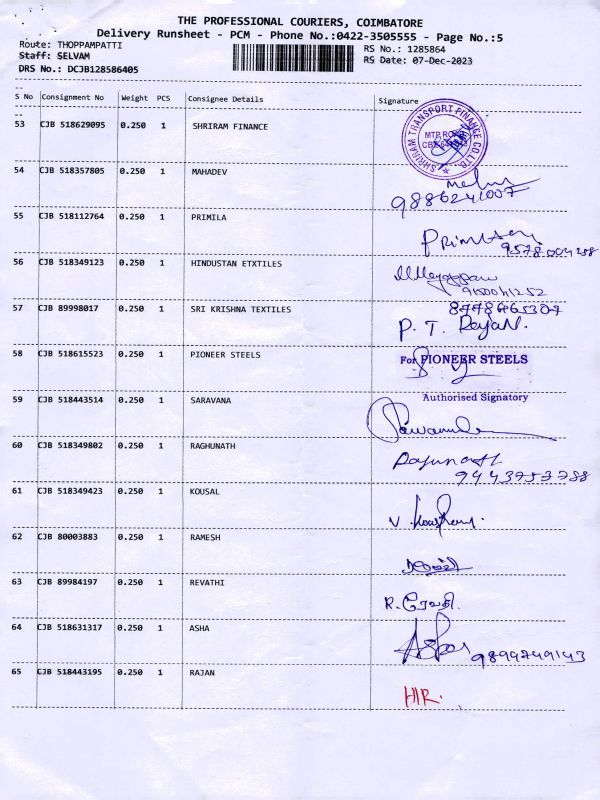 THE PROFESSIONAL COURIERS, COIMBATORE
Delivery Runsheet - PCM - Phone No.:0422-3505555 - Page No.:5
Route: THOPPAMPATTI
RS No.: 1285864
Staff: SELVAM
RS Date: 07-Dec-2023
DRS No.: DCJB128586405
S No Consignment No Weight PCS Consignee Details Signature
53 CJB 518629095 0.250 1 SHRIRAM FINANCE
SHRIRAM TRANSPORT FINANCE CO LTD
MTP ROAD
54 CJB 518357805 0.250 1 MAHADEV
9886241007
55 CJB 518112764 0.250 1 PRIMILA
56 CJB 518349123 0.250 1 HINDUSTAN ETXTILES
57 CJB 89998017 0.250 1 SRI KRISHNA TEXTILES
P. T. Rajan.
58 CJB 518615523 0.250 1 PIONEER STEELS
For PIONEER STEELS
Authorised Signatory
59 CJB 518443514 0.250 1 SARAVANA
60 CJB 518349802 0.250 1 RAGHUNATH
9443753788
61 CJB 518349423 0.250 1 KOUSAL
62 CJB 80003883 0.250 1 RAMESH
63 CJB 89984197 0.250 1 REVATHI
R. ரேவதி.
64 CJB 518631317 0.250 1 ASHA
65 CJB 518443195 0.250 1 RAJAN
H/R.